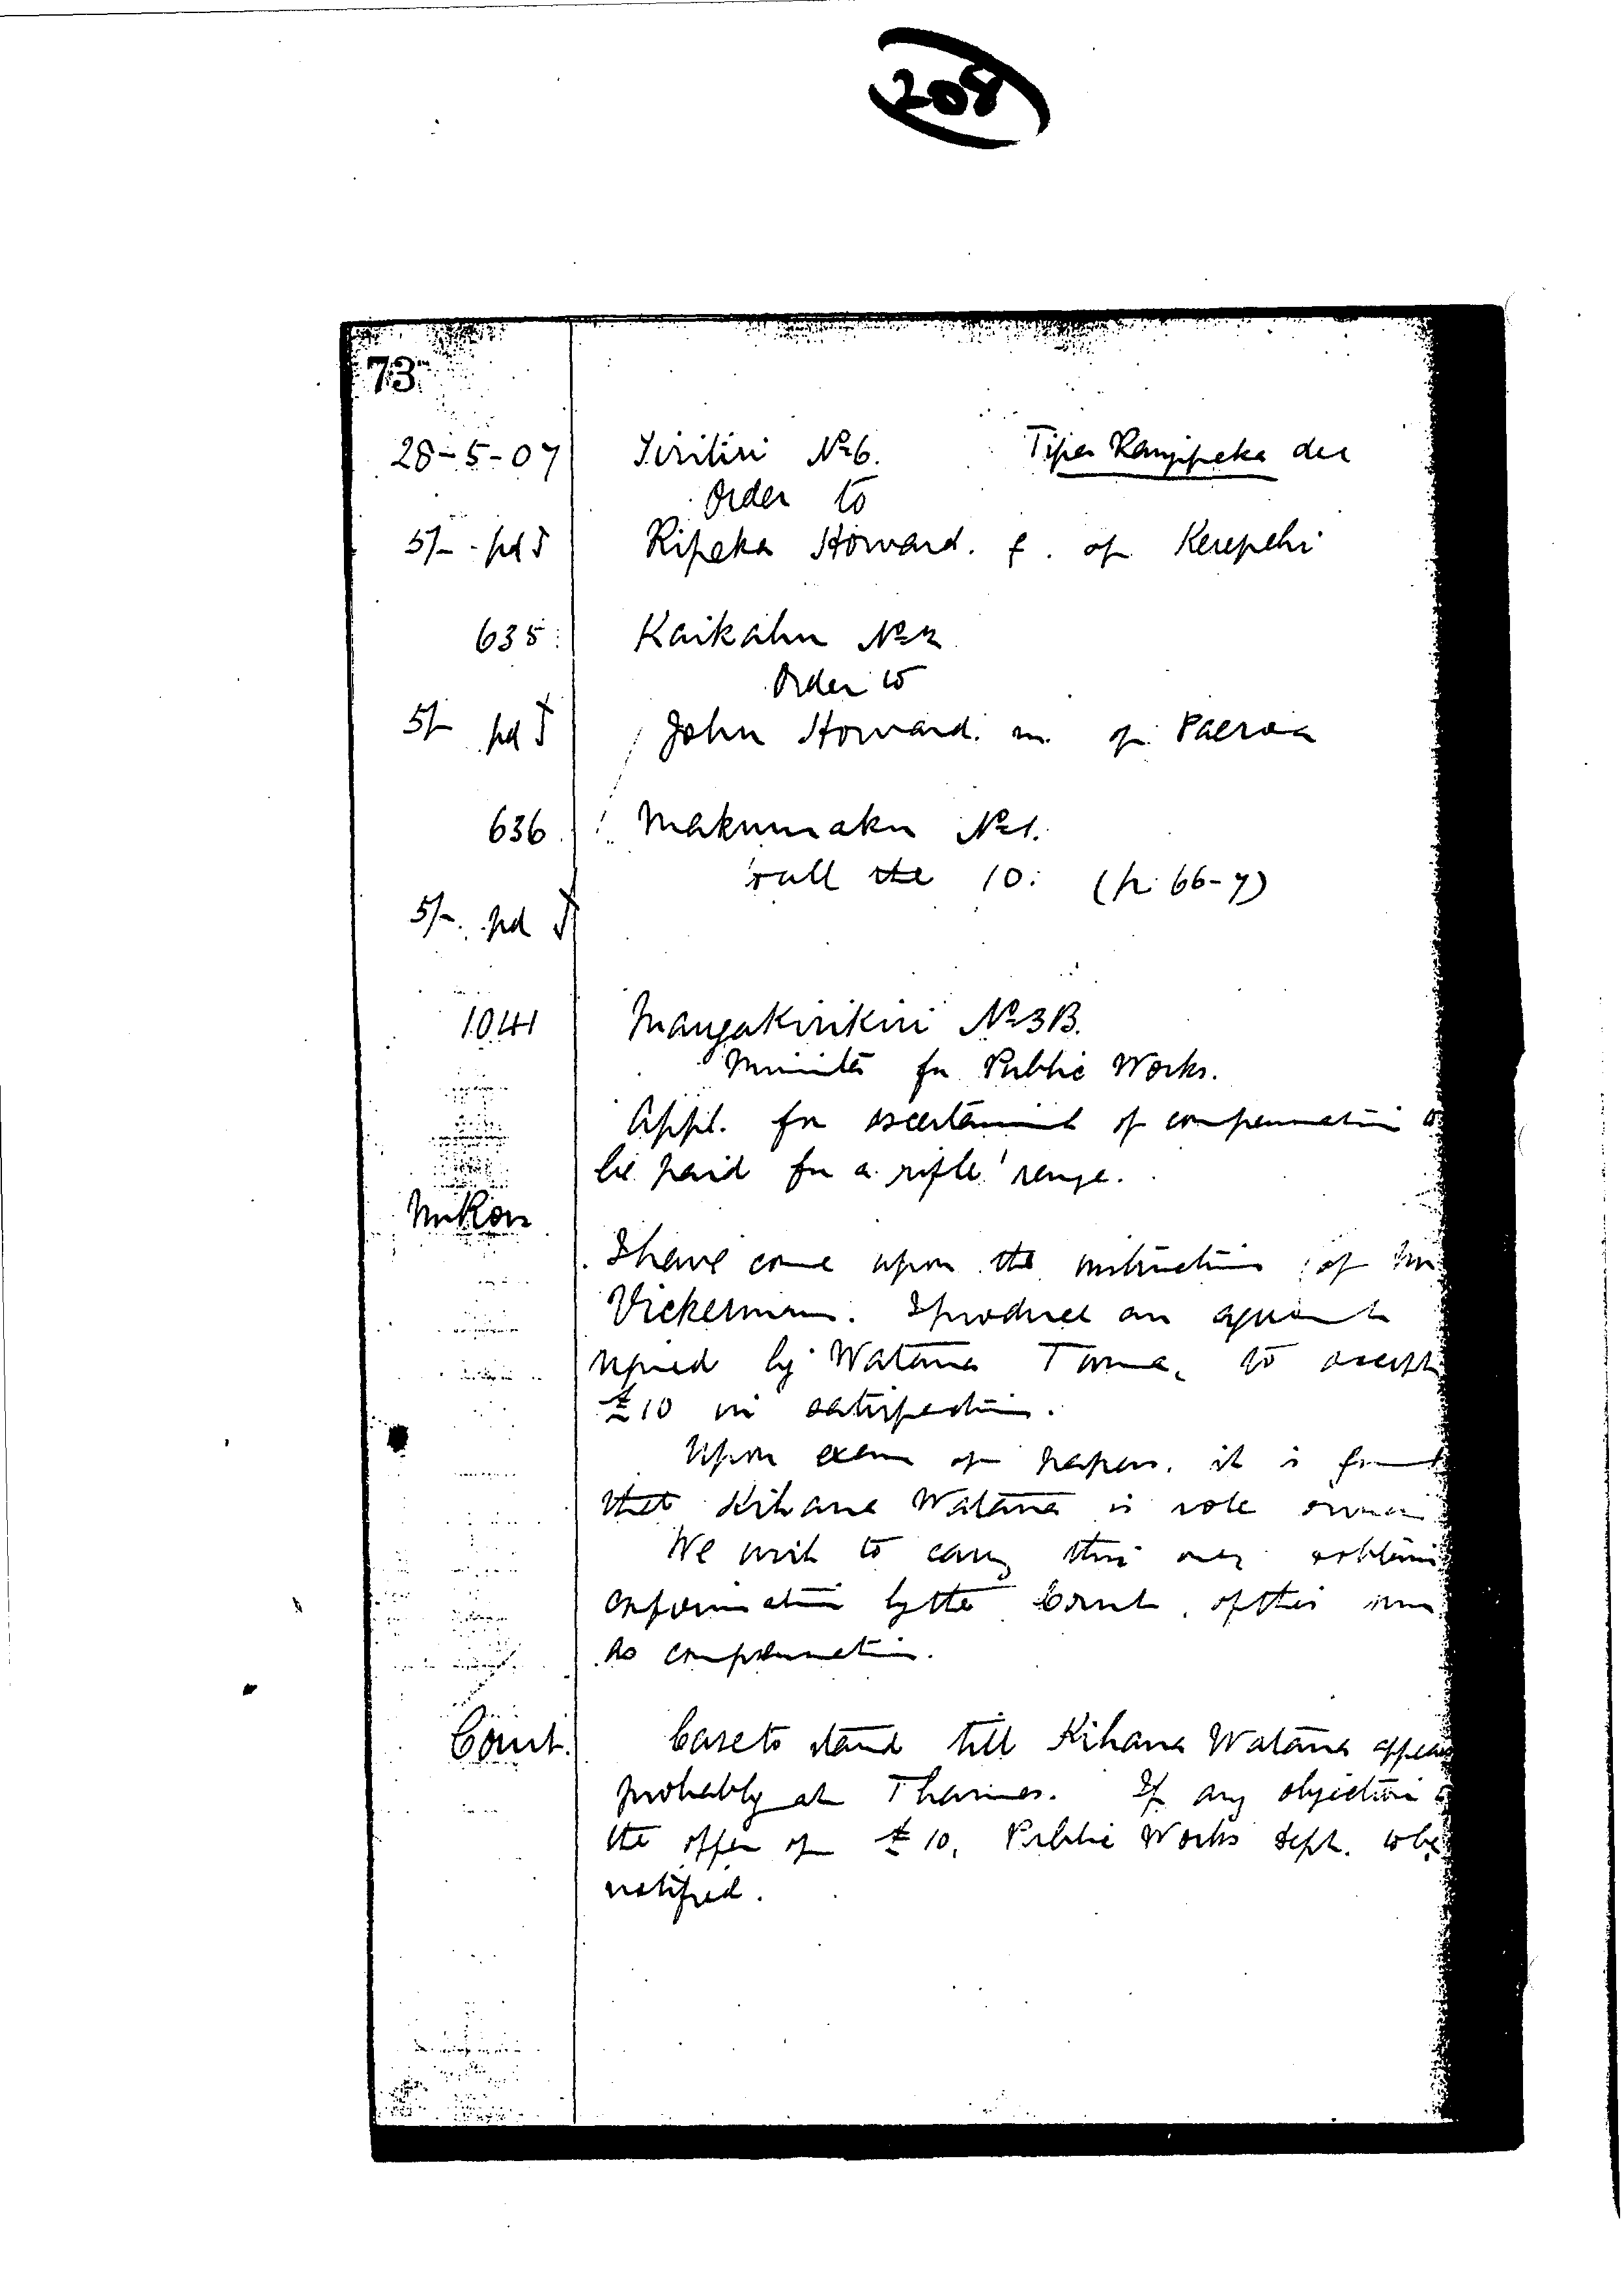 208
73
28-5-07 Tiritiri No 6. Tipa Rangipeka dec
Order to
5/- pd Ripeka Howard. f. of Kerepehi
635 Kaikahu No 2
Order to
5/- pd John Howard. m. of Paeroa
636 Makumaku No 1.
call the 10: (p. 66-7)
5/- pd
1041 Mangakirikiri No 3B.
Minister for Public Works.
Appl. for ascertainment of compensation
be paid for a rifle range.
I have come upon the instructions of Mr
Vickerman. I produce an agreement
signed by Watana to accept
£10 in satisfaction.
Upon exam of papers. it is found
that Kihana Watana is sole owner
We wish to carry this over obtain
confirmation by the Court, of this sum
as compensation.
Court. Case to stand till Kihana Watana appears
probably at Thames. If any objection
the offer of £10, Public Works Dept. to be
notified.